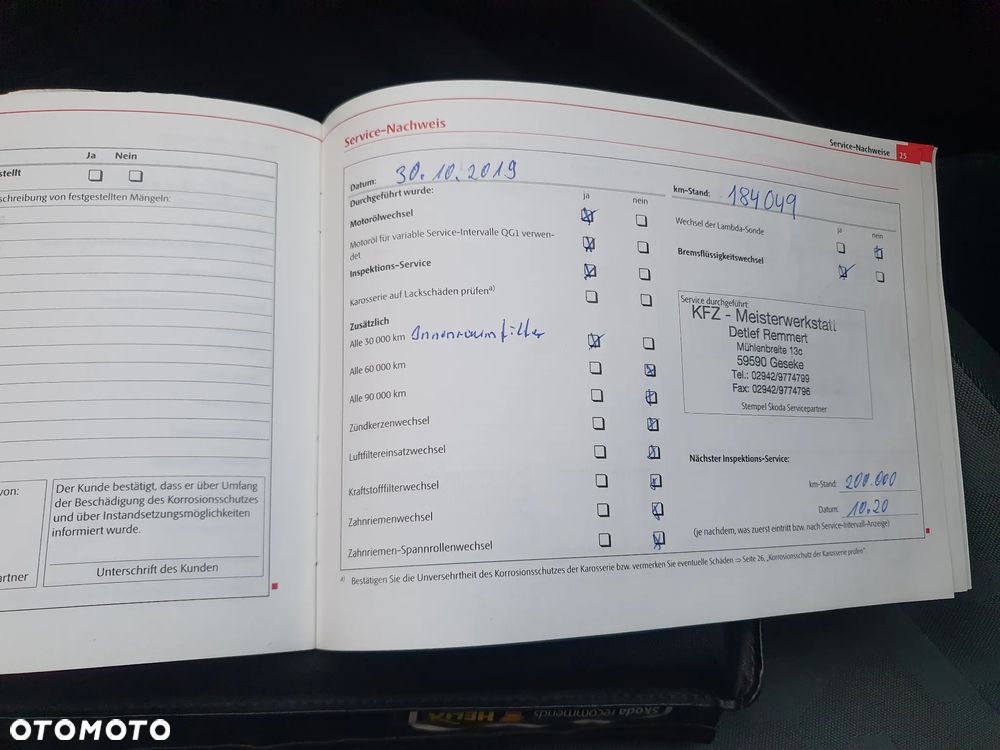 Ja Nein
stellt
schreibung von festgestellten Mängeln:
von:
artner
Der Kunde bestätigt, dass er über Umfang
der Beschädigung des Korrosionsschutzes
und über Instandsetzungsmöglichkeiten
informiert wurde.
Unterschrift des Kunden
Service-Nachweis
Service-Nachweise 25
Datum: 30.10.2019
Durchgeführt wurde:
ja nein
Motorölwechsel
Motoröl für variable Service-Intervalle QG1 verwen-
det
Inspektions-Service
Karosserie auf Lackschäden prüfen a)
Zusätzlich
Alle 30 000 km Innenraumfilter
Alle 60 000 km
Alle 90 000 km
Zündkerzenwechsel
Luftfiltereinsatzwechsel
Kraftstofffilterwechsel
Zahnriemenwechsel
Zahnriemen-Spannrollenwechsel
km-Stand: 184049
ja nein
Wechsel der Lambda-Sonde
Bremsflüssigkeitswechsel
Service durchgeführt:
KFZ - Meisterwerkstatt
Detlef Remmert
Mühlenbreite 13c
59590 Geseke
Tel.: 02942/9774799
Fax: 02942/9774796
Stempel Škoda Servicepartner
Nächster Inspektions-Service:
km-Stand: 200.000
Datum: 10.20
(je nachdem, was zuerst eintritt bzw. nach Service-Intervall-Anzeige)
a) Bestätigen Sie die Unversehrtheit des Korrosionsschutzes der Karosserie bzw. vermerken Sie eventuelle Schäden ⇒ Seite 26, „Korrosionsschutz der Karosserie prüfen".
Škoda recommends
HELIX
OTOMOTO